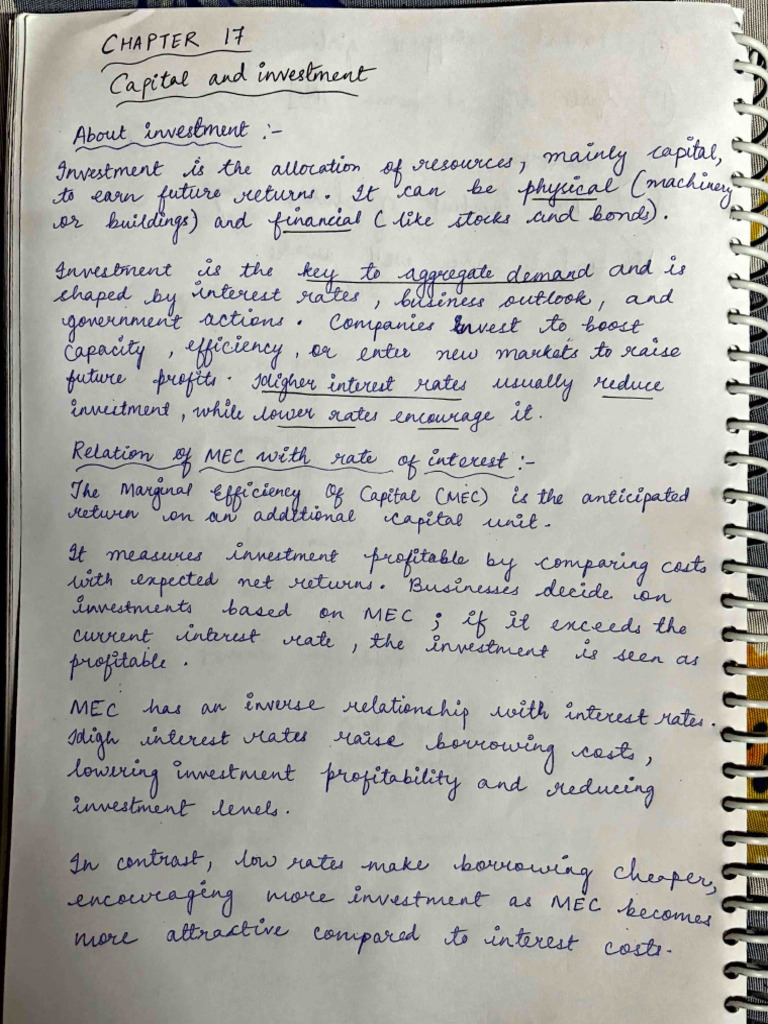 CHAPTER 17
Capital and investment
About investment :-
Investment is the allocation of resources, mainly capital,
to earn future returns. It can be physical (machinery
or buildings) and financial (like stocks and bonds).
Investment is the key to aggregate demand and is
shaped by interest rates, business outlook, and
government actions. Companies invest to boost
capacity, efficiency, or enter new markets to raise
future profits. Higher interest rates usually reduce
investment, while lower rates encourage it.
Relation of MEC with rate of interest :-
The Marginal Efficiency Of Capital (MEC) is the anticipated
return on an additional capital unit.
It measures investment profitable by comparing costs
with expected net returns. Businesses decide on
investments based on MEC; if it exceeds the
current interest rate, the investment is seen as
profitable.
MEC has an inverse relationship with interest rates.
High interest rates raise borrowing costs,
lowering investment profitability and reducing
investment levels.
In contrast, low rates make borrowing cheaper,
encouraging more investment as MEC becomes
more attractive compared to interest costs.